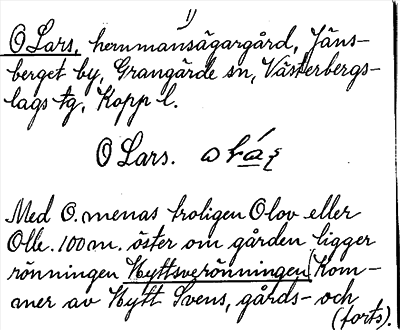 1)
O Lars, hemmansägargård, Jäns-
berget by, Grangärde sn, Västerbergs-
lags tg, Kopp l.
O Lars.
Med O. menas troligen Olov eller
Olle. 100 m. öster om gården ligger
rönningen Hyttsverönningen (Kom-
mer av Hytt Svens, gårds- och
(forts).